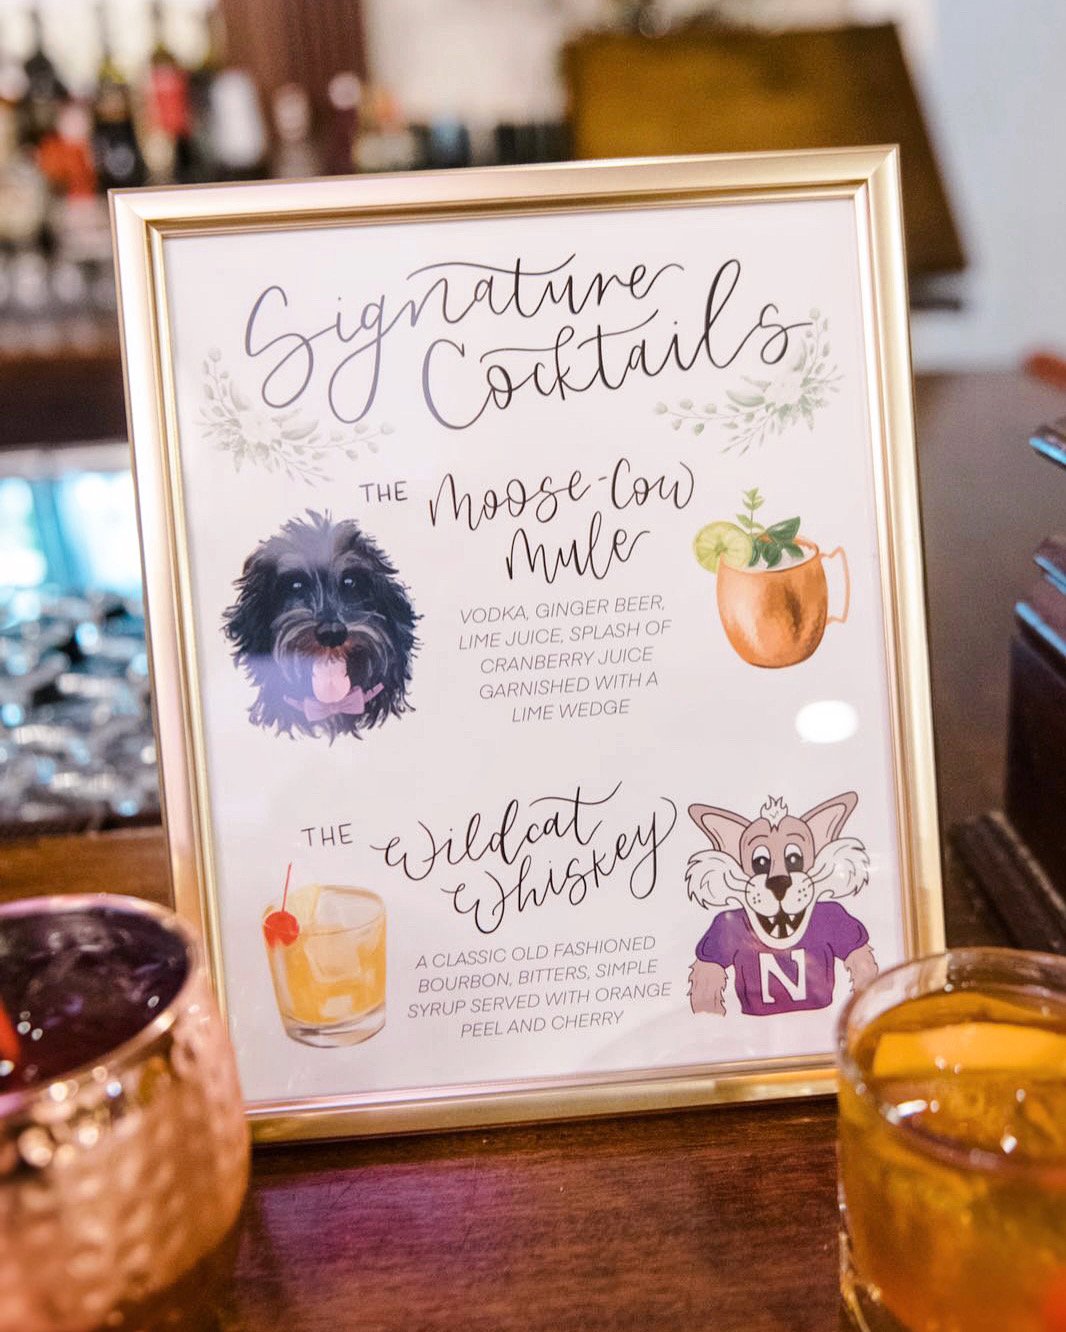 Signature
Cocktails
THE Moose-Cow
Mule
VODKA, GINGER BEER,
LIME JUICE, SPLASH OF
CRANBERRY JUICE
GARNISHED WITH A
LIME WEDGE
THE Wildcat
Whiskey
A CLASSIC OLD FASHIONED
BOURBON, BITTERS, SIMPLE
SYRUP SERVED WITH ORANGE
PEEL AND CHERRY
N